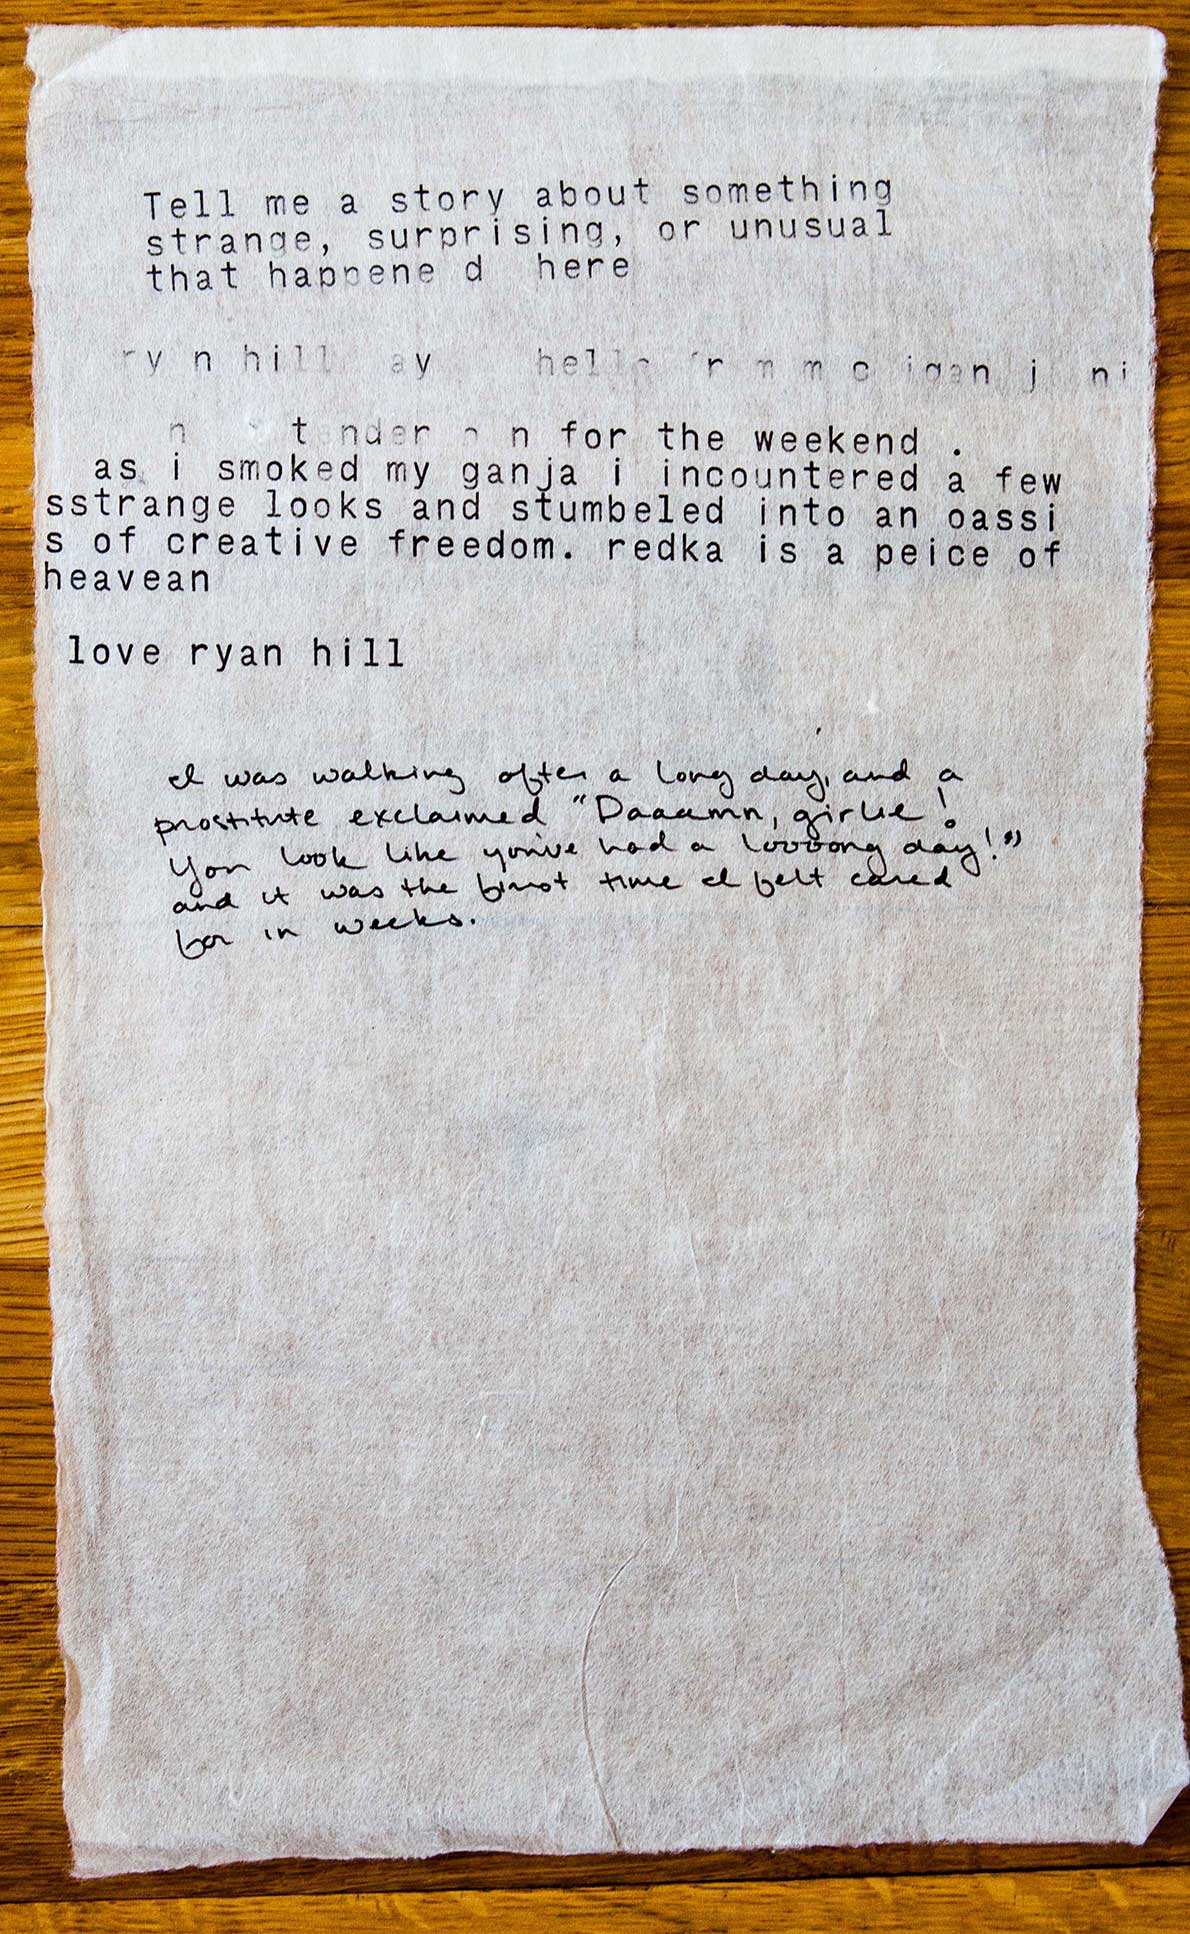 Tell me a story about something
strange, surprising, or unusual
that happene d here
ry n hill ay hello
for the weekend .
as i smoked my ganja i incountered a few
sstrange looks and stumbeled into an oassi
s of creative freedom. redka is a peice of
heavean
love ryan hill
I was walking after a long day, and a
prostitute exclaimed "Daaamn, girlie!
You look like you've had a loooong day!"
and it was the first time I felt cared
for in weeks.